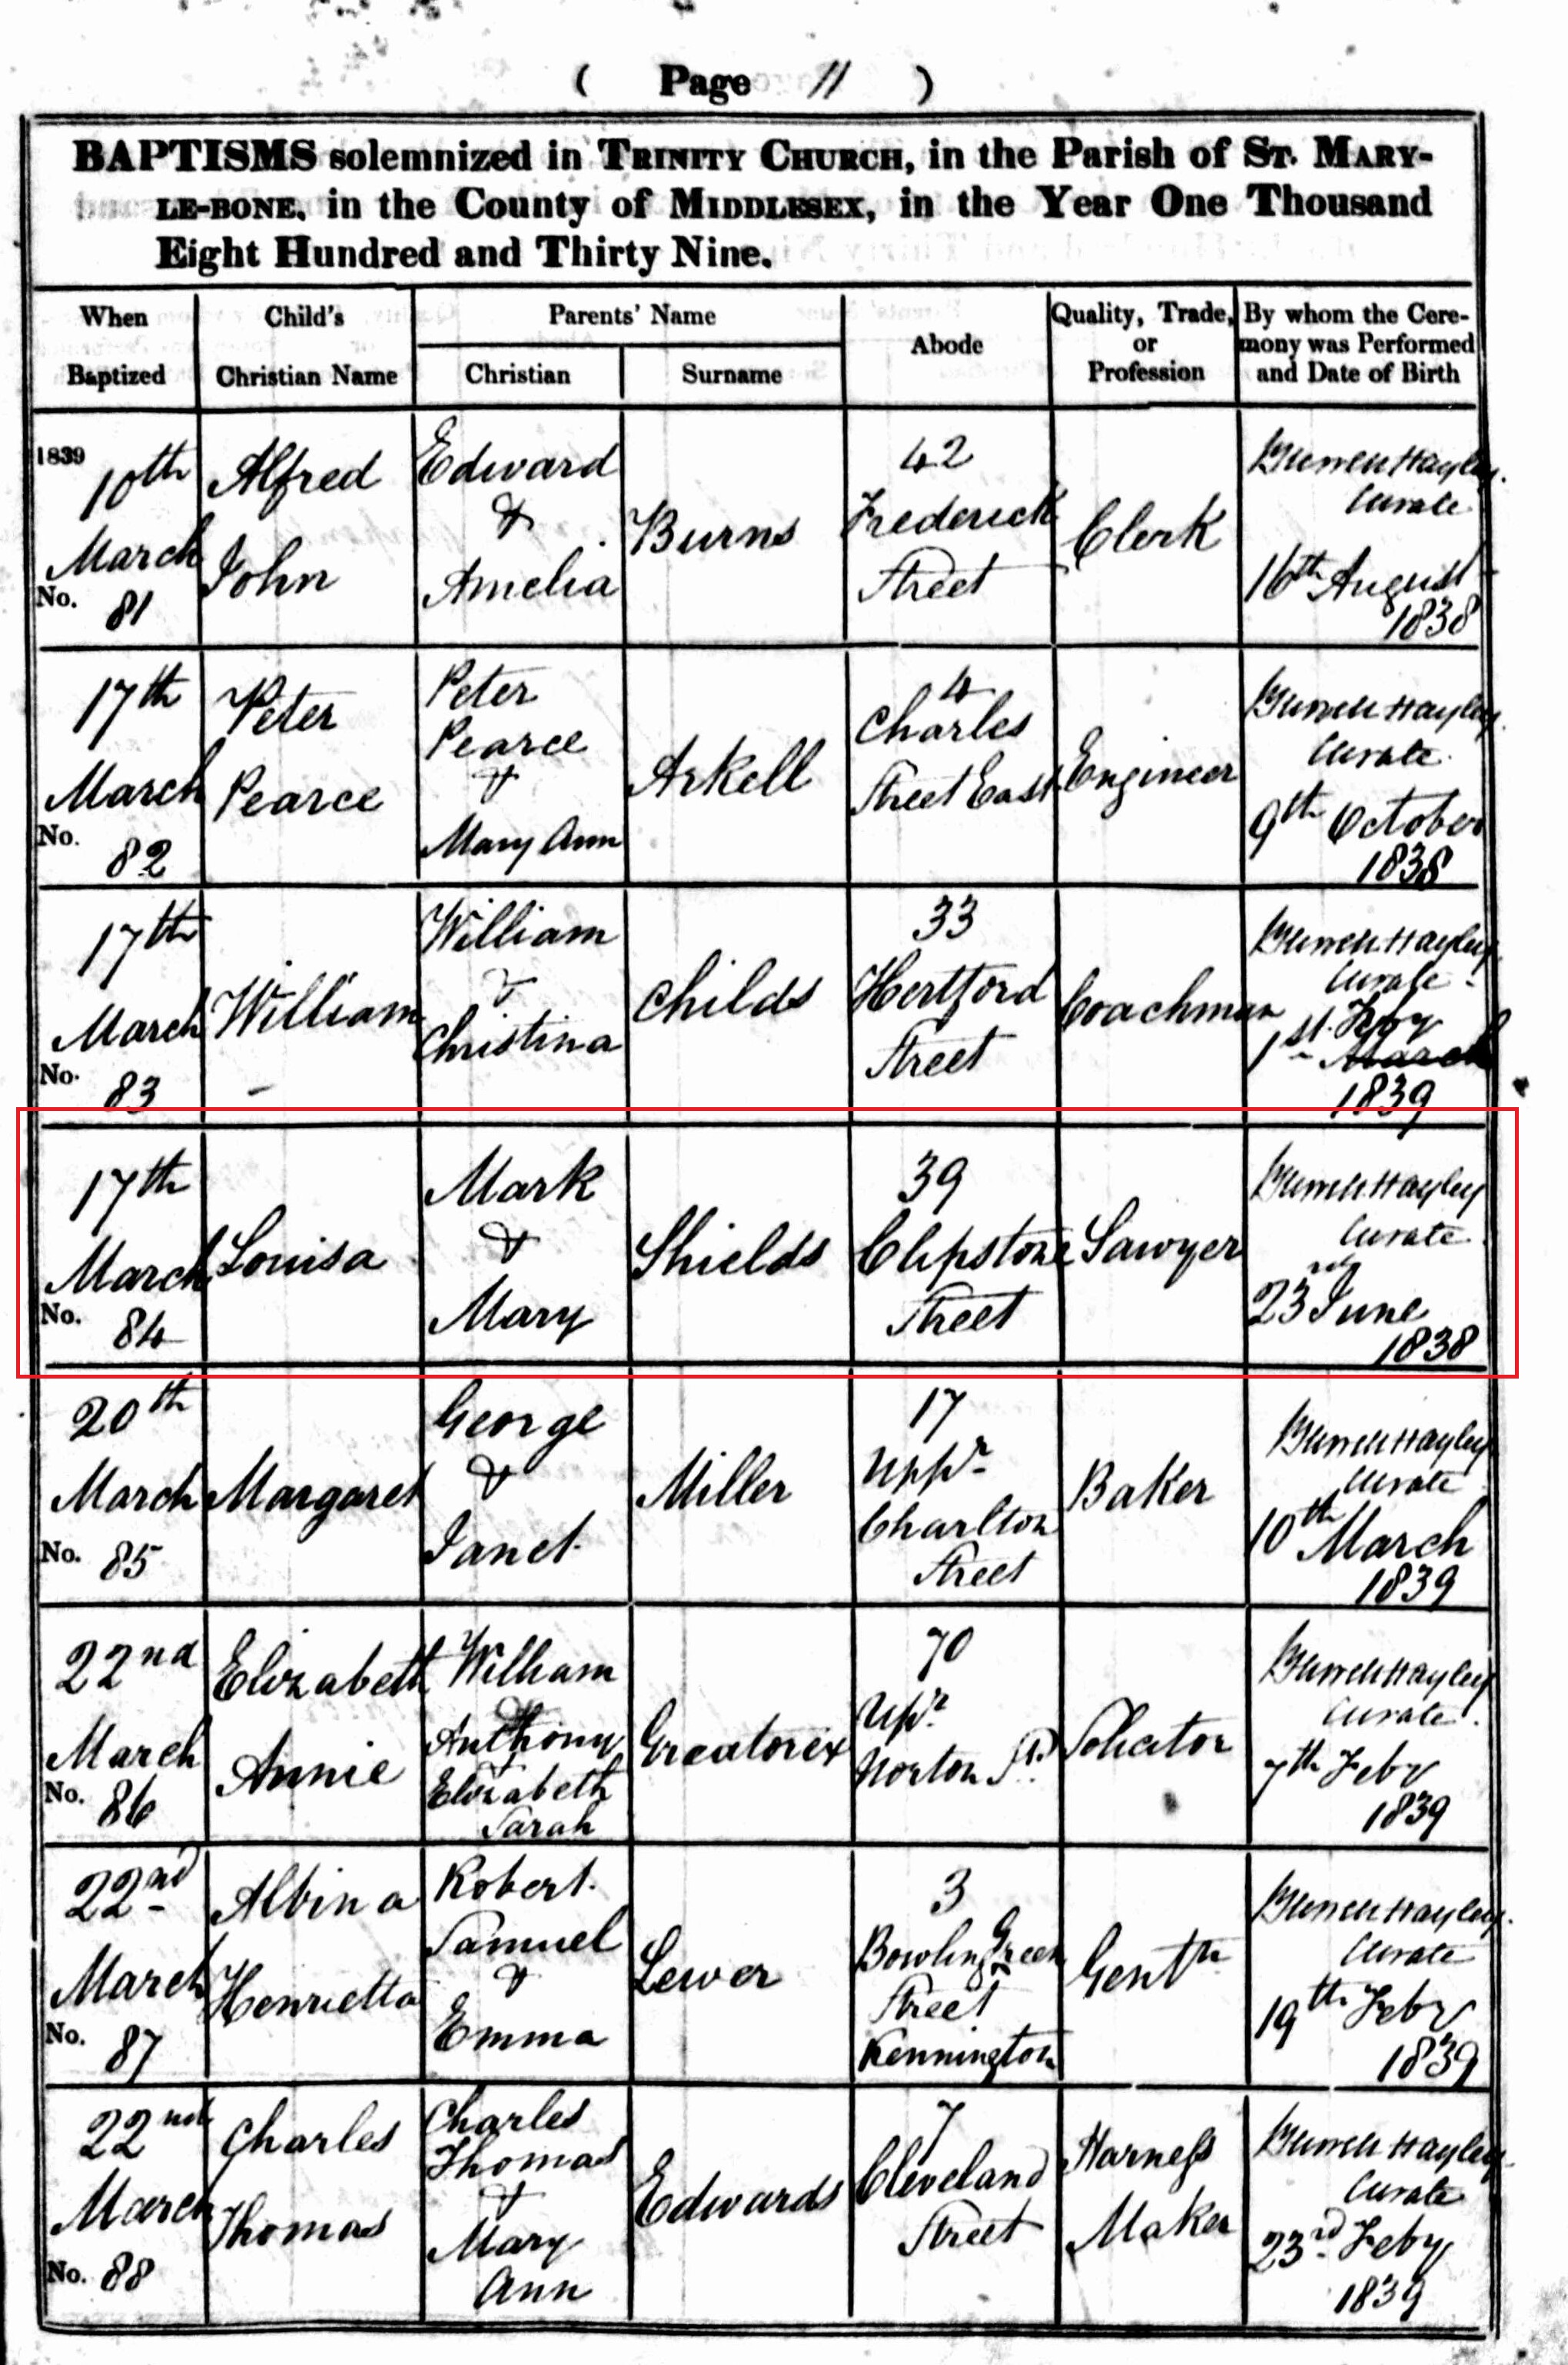 ( Page 11 )
BAPTISMS solemnized in TRINITY CHURCH, in the Parish of ST. MARY-
LE-BONE, in the County of MIDDLESEX, in the Year One Thousand
Eight Hundred and Thirty Nine.
When Baptized
Child's Christian Name
Parents' Name
Christian
Surname
Abode
Quality, Trade, or Profession
By whom the Cere-
mony was Performed
and Date of Birth
1839
10th
March
No. 81
Alfred
John
Edward
&
Amelia
Burns
42
Frederick
Street
Clerk
Burrell Hayley
Curate
16th August
1838
17th
March
No. 82
Peter
Pearce
Peter
Pearce
&
Mary Ann
Arkell
4
Charles
Street East
Engineer
Burrell Hayley
Curate
9th October
1838
17th
March
No. 83
William
William
&
Christina
Childs
33
Hertford
Street
Coachman
Burrell Hayley
Curate
1st Feby
March
1839
17th
March
No. 84
Louisa
Mark
&
Mary
Shields
39
Clipstone
Street
Sawyer
Burrell Hayley
Curate
23rd June
1838
20th
March
No. 85
Margaret
George
&
Janet
Miller
17
Uppr
Charlton
Street
Baker
Burrell Hayley
Curate
10th March
1839
22nd
March
No. 86
Elizabeth
Annie
William
Anthony
&
Elizabeth
Sarah
Greatorex
70
Upr
Norton St.
Solicitor
Burrell Hayley
Curate
7th Feby
1839
22nd
March
No. 87
Albina
Henrietta
Robert
Samuel
&
Emma
Lewer
3
Bowling Green
Street
Kennington
Gentn
Burrell Hayley
Curate
19th Feby
1839
22nd
March
No. 88
Charles
Thomas
Charles
Thomas
&
Mary
Ann
Edwards
7
Cleveland
Street
Harness
Maker
Burrell Hayley
Curate
23rd Feby
1839